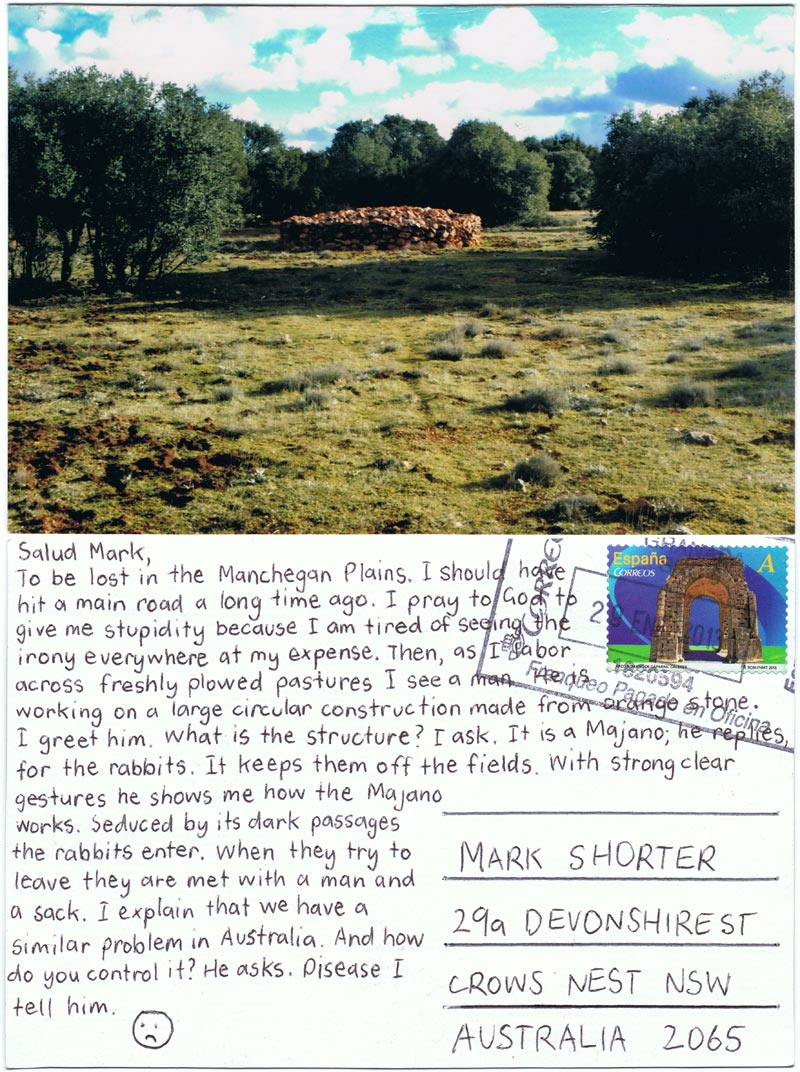 Salud Mark,
To be lost in the Manchegan Plains. I should have
hit a main road a long time ago. I pray to God to
give me stupidity because I am tired of seeing the
irony everywhere at my expense. Then, as I labor
across freshly plowed pastures I see a man. He is
working on a large circular construction made from orange stone.
I greet him. What is the structure? I ask. It is a Majano; he replies,
for the rabbits. It keeps them off the fields. With strong clear
gestures he shows me how the Majano
works. Seduced by its dark passages
the rabbits enter. When they try to
leave they are met with a man and
a sack. I explain that we have a
similar problem in Australia. And how
do you control it? He asks. Disease I
tell him.
España
CORREOS
A
CORREOS
Franqueo Pagado en Oficina
MARK SHORTER
29a DEVONSHIRE ST
CROWS NEST NSW
AUSTRALIA 2065